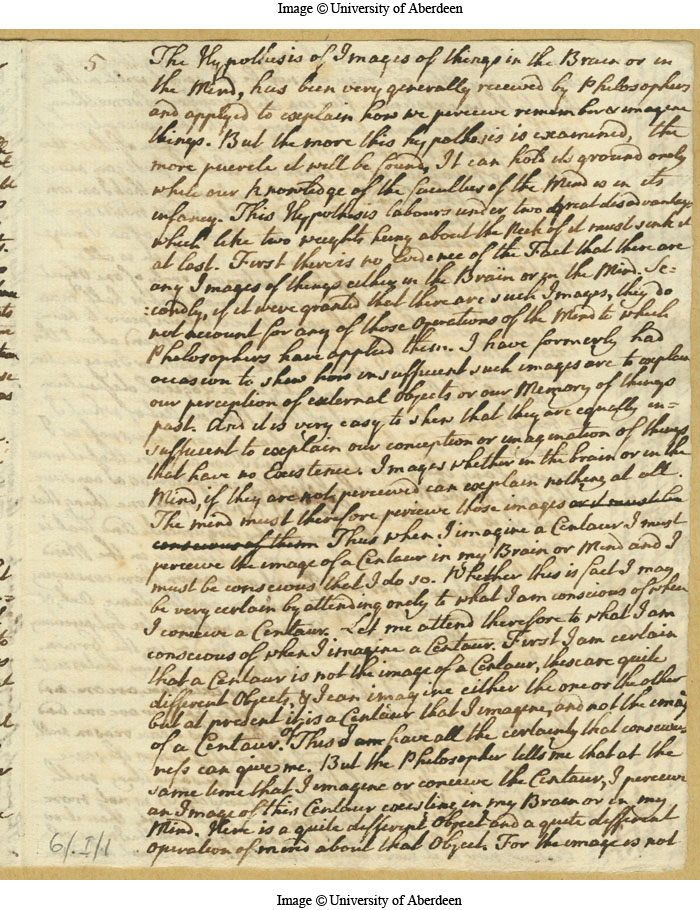 Image © University of Aberdeen
5
The Hypothesis of Images of things in the Brain or in
the Mind, has been very generally received by Philosophers
and applyed to explain how we perceive remember & imagine
things. But the more this hypothesis is examined, the
more puerile it will be found, It can hold its ground onely
while our Knowledge of the faculties of the Mind is in its
infancy. This Hypothesis labours under two great disadvantages
which like two weights hung about the Neck of it must sink it
at last. First there is no Evidence of the Fact that there are
any Images of things either in the Brain or in the Mind. Se-
:condly, if it were granted that there are such Images, they do
not account for any of those Operations of the Mind to which
Philosophers have applied them. I have formerly had
occasion to shew how insufficient such images are to explain
our perception of external objects or our Memory of things
past. And it is very easy to shew that they are equally in-
sufficient to explain our conception or imagination of things
that have no Existence. Images whether in the brain or in the
Mind, if they are not perceived can explain nothing at all.
The mind must therefore perceive those images or it must be
conscious of them Thus when I imagine a Centaur I must
perceive the image of a Centaur in my Brain or Mind and I
must be conscious that I do so. Whether this is fact I may
be very certain by attending onely to what I am conscious of when
I conceive a Centaur. Let me attend therefore to what I am
conscious of when I imagine a Centaur. First I am certain
that a Centaur is not the image of a Centaur, these are quite
different Objects, & I can imagine either the one or the other
but at present it is a Centaur that I imagine, and not the image
of a Centaur. Of This I am have all the certainty that conscious-
ness can give me. But the Philosopher tells me that at the
same time that I imagine or conceive the Centaur, I perceive
an Image of this Centaur existing in my Brain or in my
Mind. Here is a quite different Object and a quite different
operation of mind about that Object. For the image is not
6/I/1
Image © University of Aberdeen